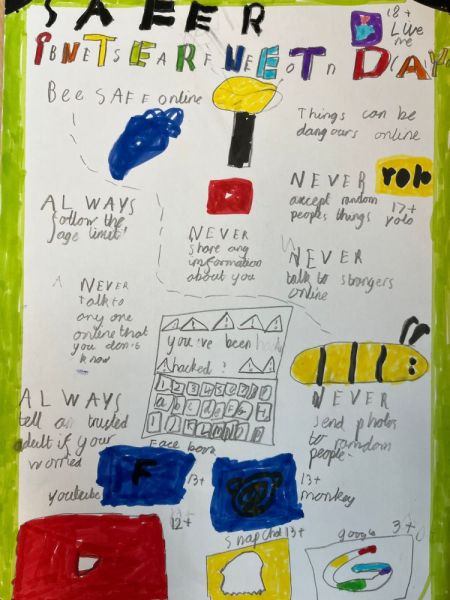 SAFER
INTERNET DAY
18+
Live me
Bee SAFE online
Things can be
dangours online
ALWAYS
follow the
age limit!
NEVER
share any
imformation
about you
NEVER
accept random
peoples things
rolo
17+
yolo
NEVER
talk to strangers
online
NEVER
Talk to
any one
online that
you don't
know
you've been
hacked!
1 2 3 4 5
a b c d e f
ALWAYS
tell a trusted
adult if your
worried
NEVER
send photos
to ramdom
people
Face book
F
13+
13+
monkey
youtube
12+
Snapchat 13+
google 3+